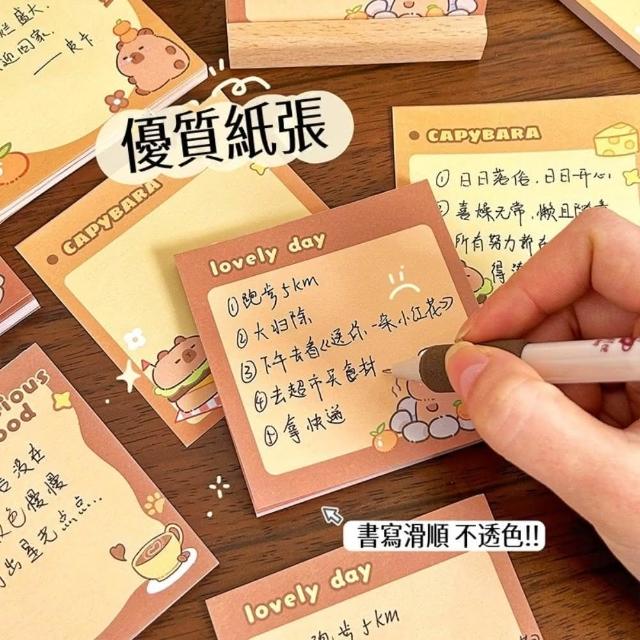 盛大、
迎回家、
優質紙張
CAPYBARA
①日日落俗、日日开心
喜燥无常、懒且随意
所有努力都
得
CAPYBARA
lovely day
①跑步5km
②大扫除
③下午去看《送你一朵小红花》
④去超市买食材
⑤拿快递
ious
ood
没在
色慢慢
出星光点点...
書寫滑順 不透色!!
lovely day
跑步5km